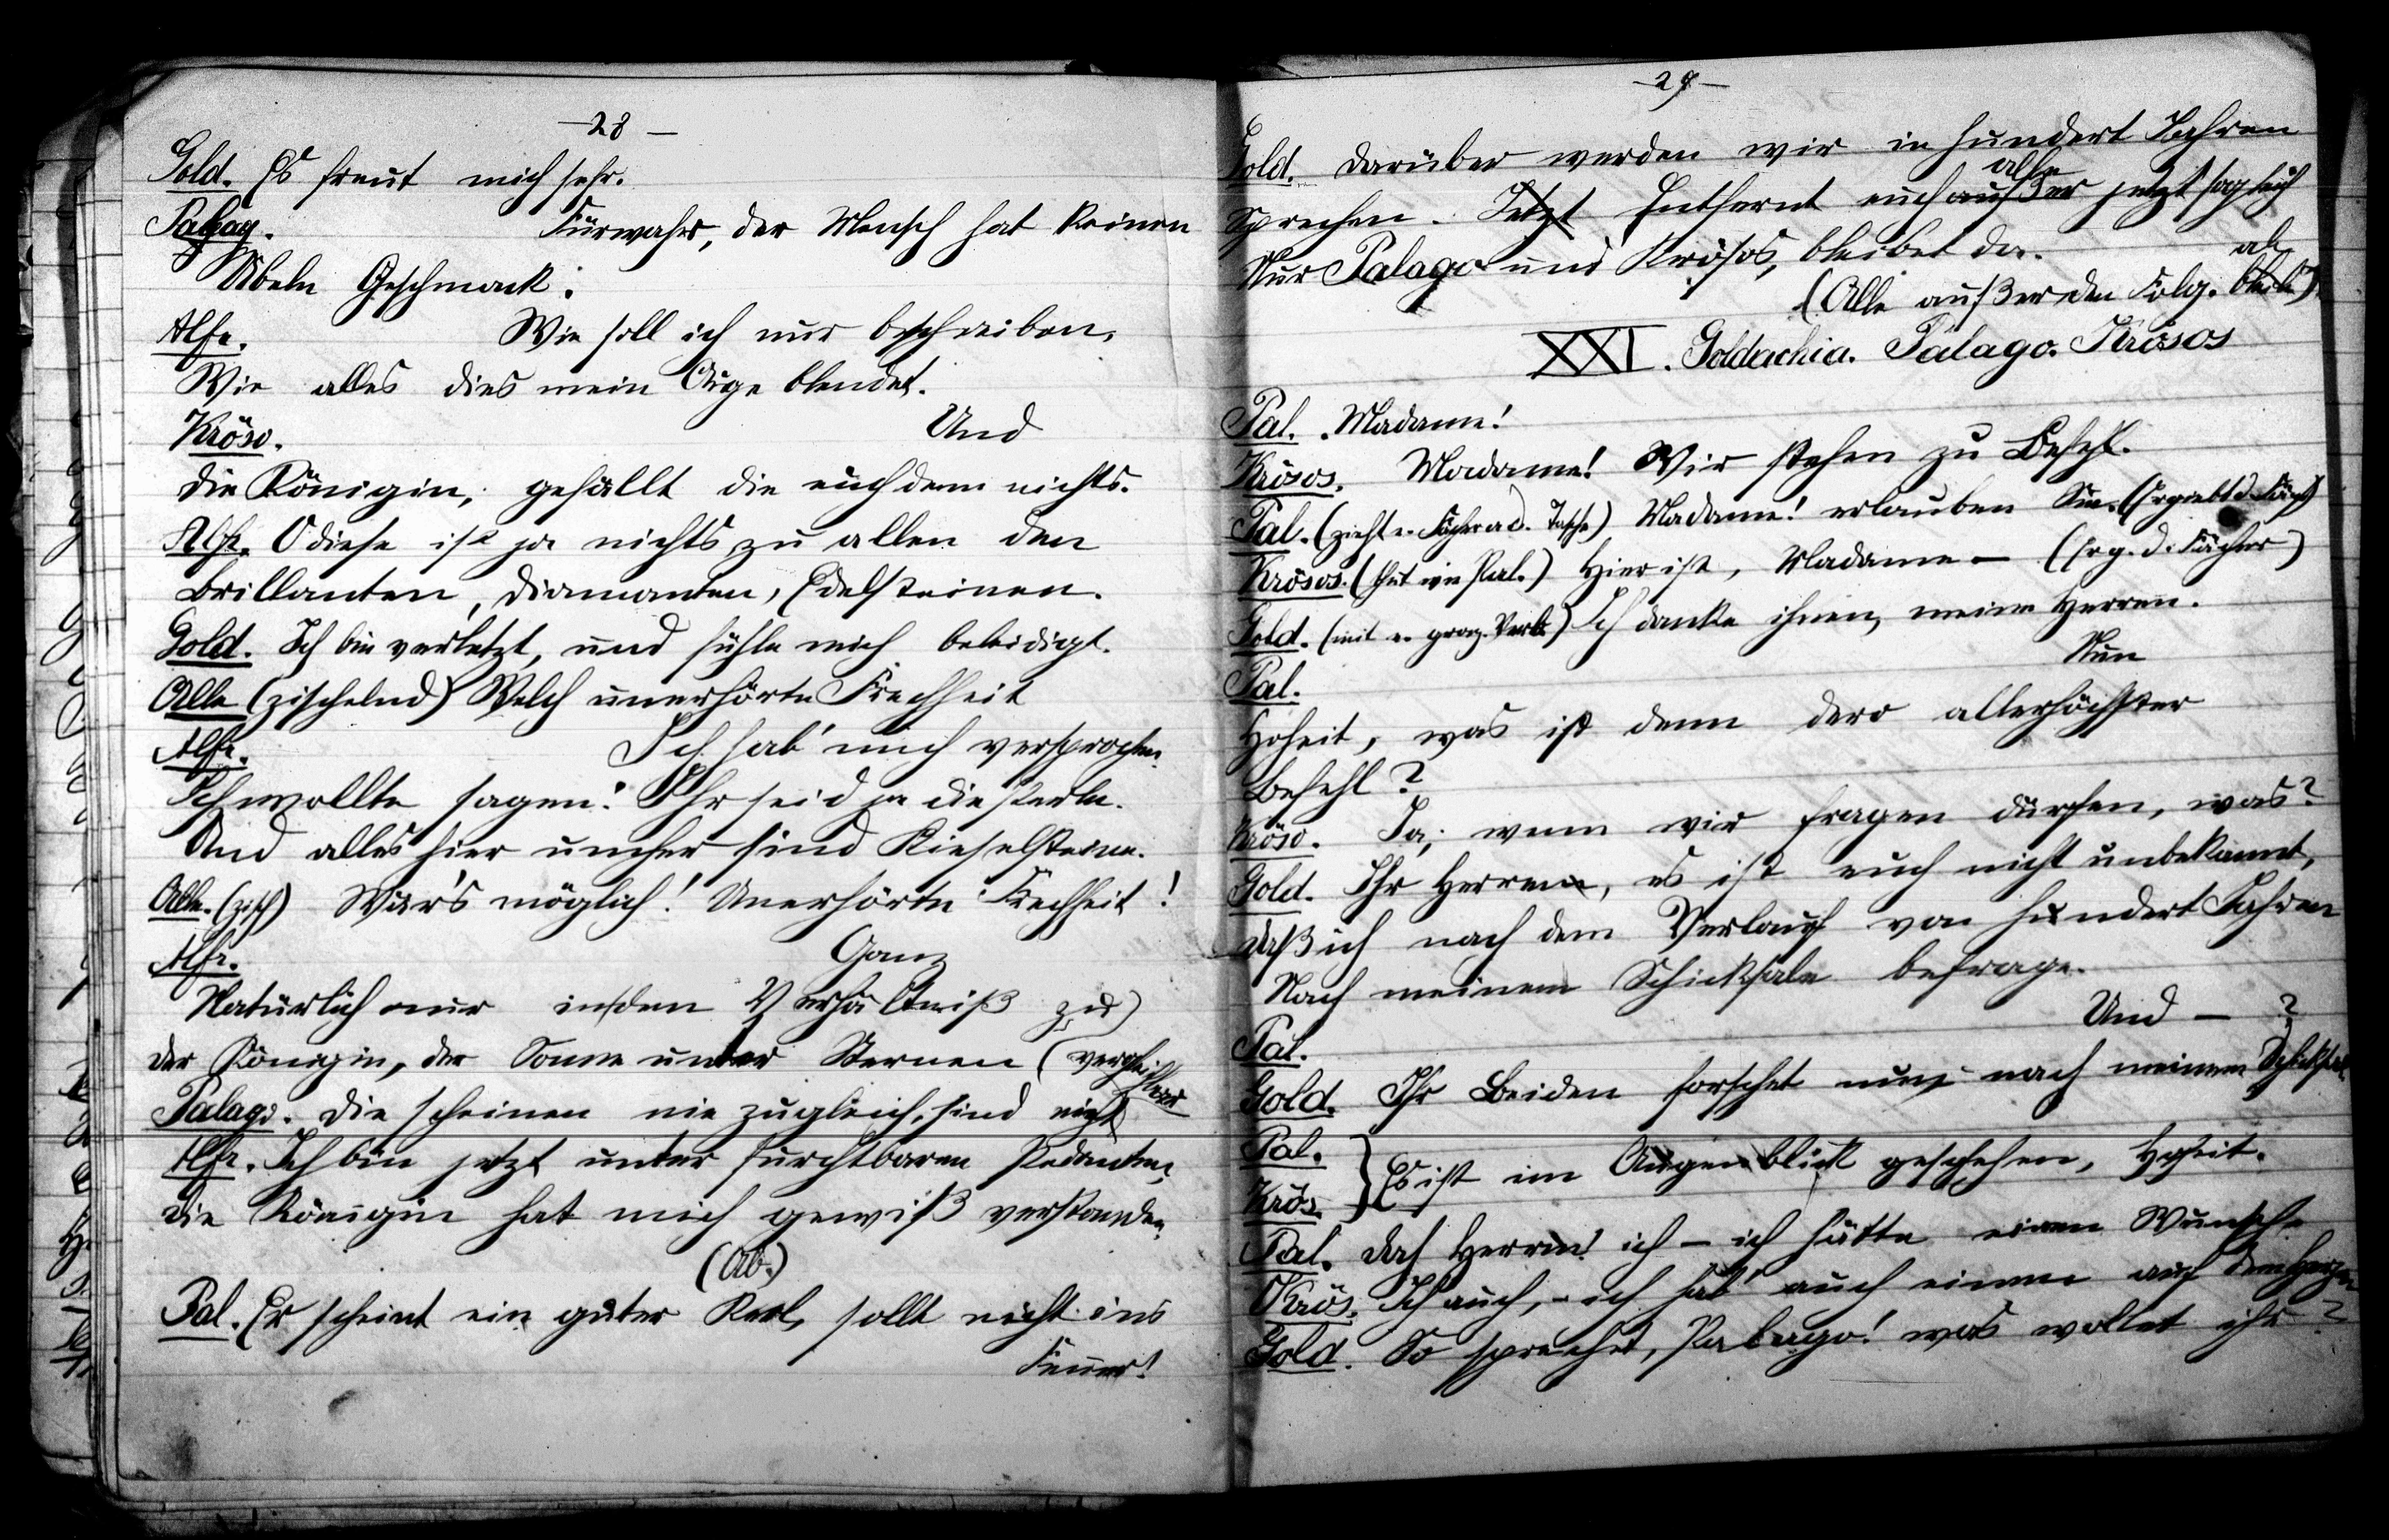 —28—
Gold. Es freut mich sehr.
Palag. Fürwahr, der Mensch hat keinen
Übeln Geschmack.
Alfr. Wie soll ich nur beschreiben,
Wie alles dies mein Auge blendet.
Kröso. Und
die Königin, gefällt die euch denn nichts.
Alfr. O diese ist ja nichts zu allen den
Brillanten, Diamanten, Edelsteinen.
Gold. Ich bin verletzt, und fühle mich beleidigt.
Alle (zischelnd) Welch unerhörte Frechheit
Alfr. Ich hab' mich versprochen.
Ich wollte sagen: Ihr seid ja die Perle.
Und alles hier umher sind Kieselsteine.
Alle. (zisch) Wär's möglich! Unerhörte Frechheit!
Alfr. Ganz
Natürlich nur in dem Verhältniß zu
der Königin, der Sonne unter Sternen (vergleichbar
Palago. Die scheinen nie zugleich, sind nicht
Alfr. Ich bin jetzt unter furchtbaren Pedanten,
die Königin hat mich gewiß verstanden.
(Ab.)
Pal. Er scheint ein guter Kerl, sollt nicht ins
Feuer!
—29—
Gold. Darüber werden wir in hundert Jahren
alle
Sprechen. Jetzt Entfernt euch außer jetzt sogleich
Nur Palago und Krösos, bleibet da.
ab
(Alle außer den Folg. bleibt)
XXI. Goldachia. Palago. Krösos
Pal. Madame!
Krösos. Madame! Wir stehen zu Befehl.
Pal. (zieht e. Fächer a d. Tasche) Madame! erlauben Sie.
Krösos. (thut wie Pal.) Hier ist, Madame — (erg. d. Fächer)
Gold. (mit e. graz. Verb.) Ich danke ihnen, meine Herren.
Pal. Nun
Hoheit, was ist denn dero allerhöchster
Befehl?
Kröso. Ja, wenn wir fragen dürfen, was?
Gold. Ihr Herren, es ist euch nicht unbekannt,
daß ich nach dem Verlauf von hundert Jahren
Nach meinem Schicksale befrage.
Pal. Und — ?
Gold. Ihr Beiden forschet nun nach meinem Schicksal.
Pal.
Krös. } Es ist im Augenblick geschehen, Hoheit.
Pal. Doch Herrin! ich — ich hätte einen Wunsch.
Krös. Ich auch, - ich hab' auch einen auf dem Herzen
Gold. So sprechet, Palago! was wollet ihr?